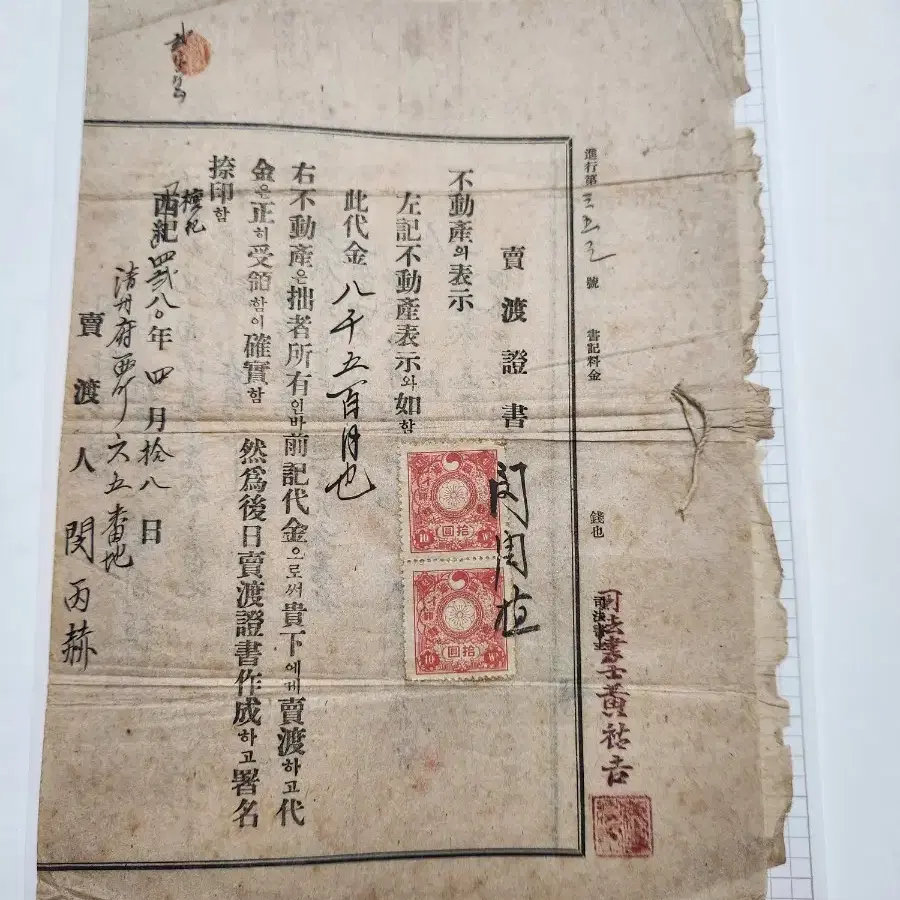 進行第 號 書記料金 錢也
司法書士 黃祐吉
賣渡證書
不動產의表示
左記不動產表示와如함
此代金八千五百円也
右不動產은拙者所有인바前記代金으로써貴下에게賣渡하고代
金은正히受領함이確實함 然爲後日賣渡證書作成하고署名
捺印함
檀紀
西紀四貳八〇年四月拾八日
淸州府 六五番地
賣渡人 閔丙赫
拾圓
10 W
拾圓
10 W